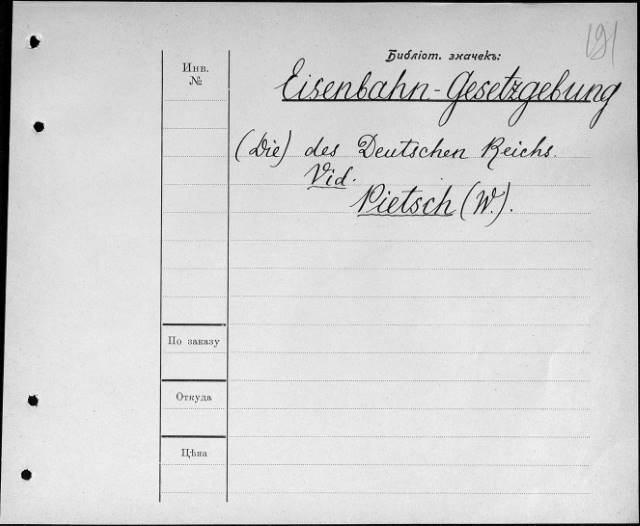 Библіот. значекъ:
Инв.
№
Eisenbahn-Gesetzgebung
(Die) des Deutschen Reichs.
Vid.
Pietsch (W.).
По заказу
Откуда
Цѣна